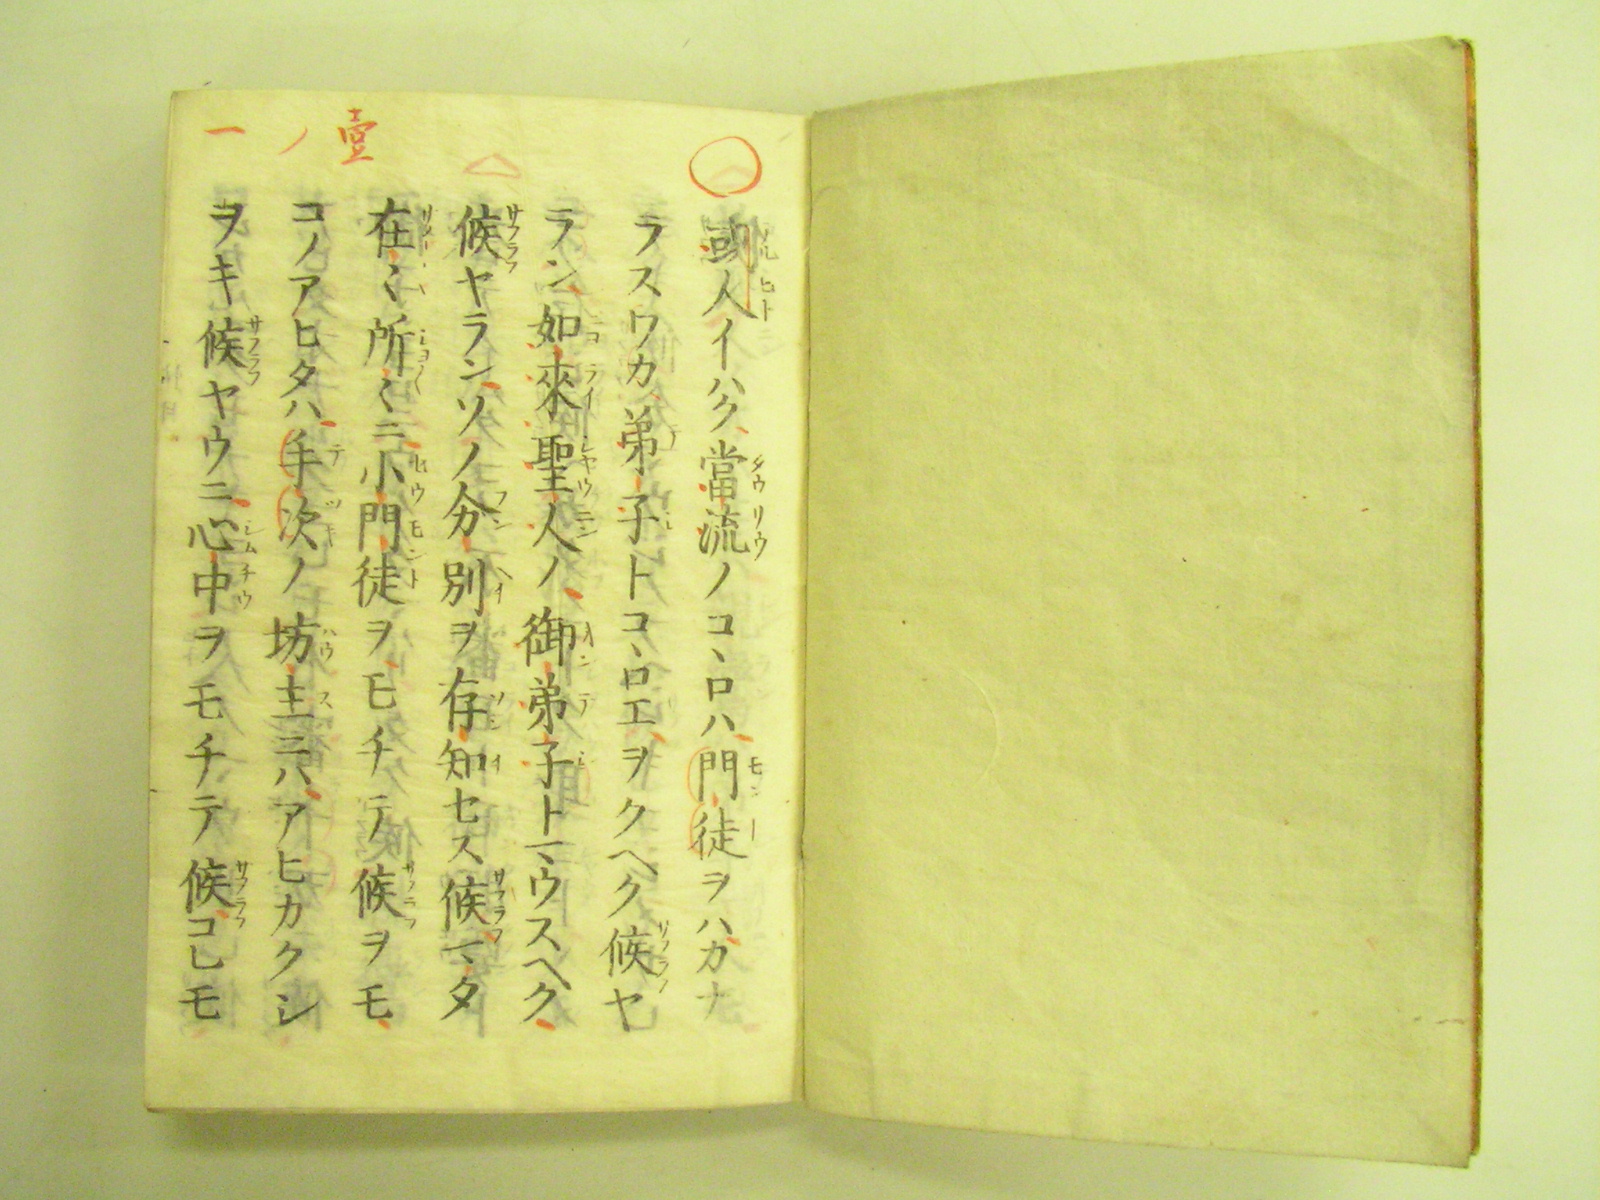 壹ノ一
或人イハク當流ノコヽロハ門徒ヲハカナ
ラスワカ弟子トコヽロエヲクヘク候ヤ
ラン如來聖人ノ御弟子トマウスヘク
候ヤランソノ分別ヲ存知セス候マタ
在〻所〻ニ小門徒ヲモチテ候ヲモ
コノアヒタハ手次ノ坊主ニハアヒカクシ
ヲキ候ヤウニ心中ヲモチテ候コレモ